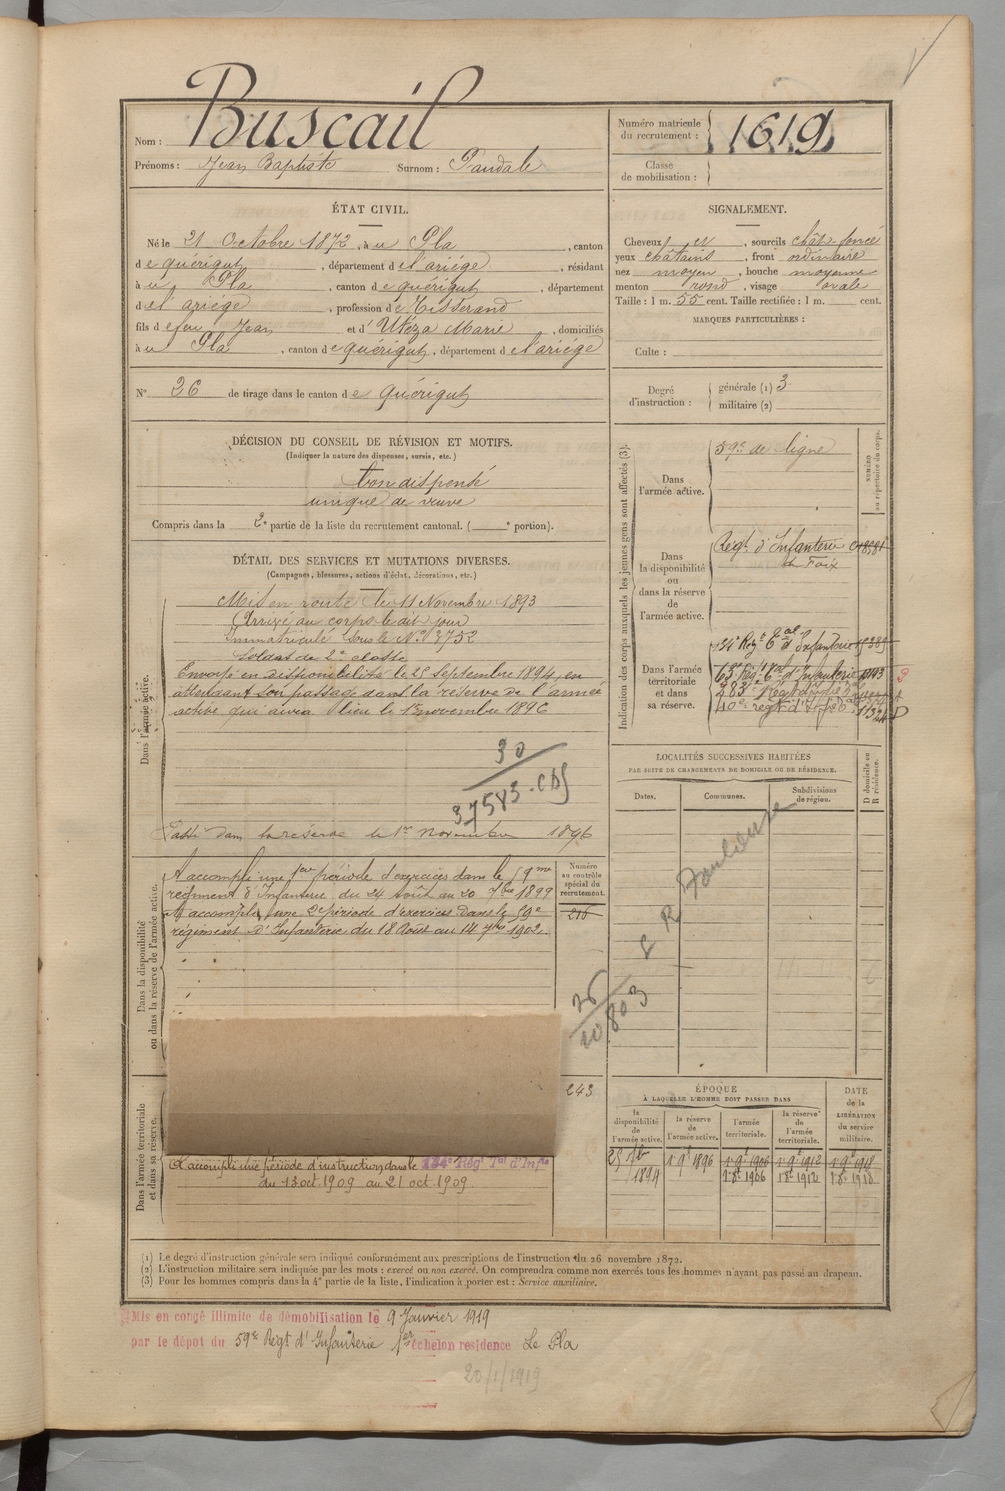 Nom : Buscail
Prénoms : Jean Baptiste Surnom : Pandalé
Numéro matricule du recrutement : 1619
Classe de mobilisation :
ÉTAT CIVIL.
Né le 21 Octobre 1872, à u Pla, canton
d e quérigut, département d e l'ariége, résidant
à u Pla, canton d e quérigut, département
d e l'ariége, profession d e Tisserand
fils d e feu Jean et d' Utéza Marie, domiciliés
à u Pla, canton d e quérigut, département d e l'ariége
N° 26 de tirage dans le canton d e quérigut
SIGNALEMENT.
Cheveux, sourcils chât. foncé
yeux châtains, front ordinaire
nez moyen, bouche moyenne
menton rond, visage ovale
Taille : 1 m. 55 cent. Taille rectifiée : 1 m. cent.
MARQUES PARTICULIÈRES :
Culte :
Degré d'instruction : générale (1) 3
militaire (2)
DÉCISION DU CONSEIL DE RÉVISION ET MOTIFS.
(Indiquer la nature des dispenses, sursis, etc.)
bon dispensé
unique de veuve
Compris dans la 2e partie de la liste du recrutement cantonal. ( e portion).
DÉTAIL DES SERVICES ET MUTATIONS DIVERSES.
(Campagnes, blessures, actions d'éclat, décorations, etc.)
Dans l'armée active.
Mis en route le 11 Novembre 1893
Arrivé au corps le dit jour
Immatriculé sous le N° 3752
Soldat de 2e classe
Envoyé en disponibilité le 25 septembre 1894, en
attendant son passage dans la réserve de l'armée
active qui aura lieu le 1er novembre 1896
30
37583
Passé dans la réserve le 1er Novembre 1896
Dans la disponibilité ou dans la réserve de l'armée active.
A accompli une 1ère période d'exercices dans le 59me
régiment d'Infanterie du 24 Août au 20 7bre 1899
A accompli une 2e période d'exercices dans le 59e
régiment d'Infanterie du 18 Août au 14 7bre 1902.
Numéro au contrôle spécial du recrutement.
216
243
Dans l'armée territoriale et dans sa réserve.
A accompli une période d'instruction dans le 134e Régt Tal d'Infie
du 13 oct 1909 au 21 oct 1909.
Indication des corps auxquels les jeunes gens sont affectés (3).
NUMÉRO au répertoire du corps.
Dans l'armée active.
59e de ligne
Dans la disponibilité ou dans la réserve de l'armée active.
Régt d'Infanterie
de Foix
Dans l'armée territoriale et dans sa réserve.
LOCALITÉS SUCCESSIVES HABITÉES
PAR SUITE DE CHANGEMENTS DE DOMICILE OU DE RÉSIDENCE.
Dates. Communes. Subdivisions de région. D domicile ou R résidence.
Toulouse
ÉPOQUE
À LAQUELLE L'HOMME DOIT PASSER DANS
la disponibilité de l'armée active. la réserve de l'armée active. l'armée territoriale. la réserve de l'armée territoriale.
DATE de la LIBÉRATION du service militaire.
1894
(1) Le degré d'instruction générale sera indiqué conformément aux prescriptions de l'instruction du 26 novembre 1872.
(2) L'instruction militaire sera indiquée par les mots : exercé ou non exercé. On comprendra comme non exercés tous les hommes n'ayant pas passé au drapeau.
(3) Pour les hommes compris dans la 4e partie de la liste, l'indication à porter est : Service auxiliaire.
Mis en congé illimité de démobilisation le 9 Janvier 1919
par le dépôt du 59e Régt d'Infanterie 1er échelon résidence Le Pla
20/1/1919